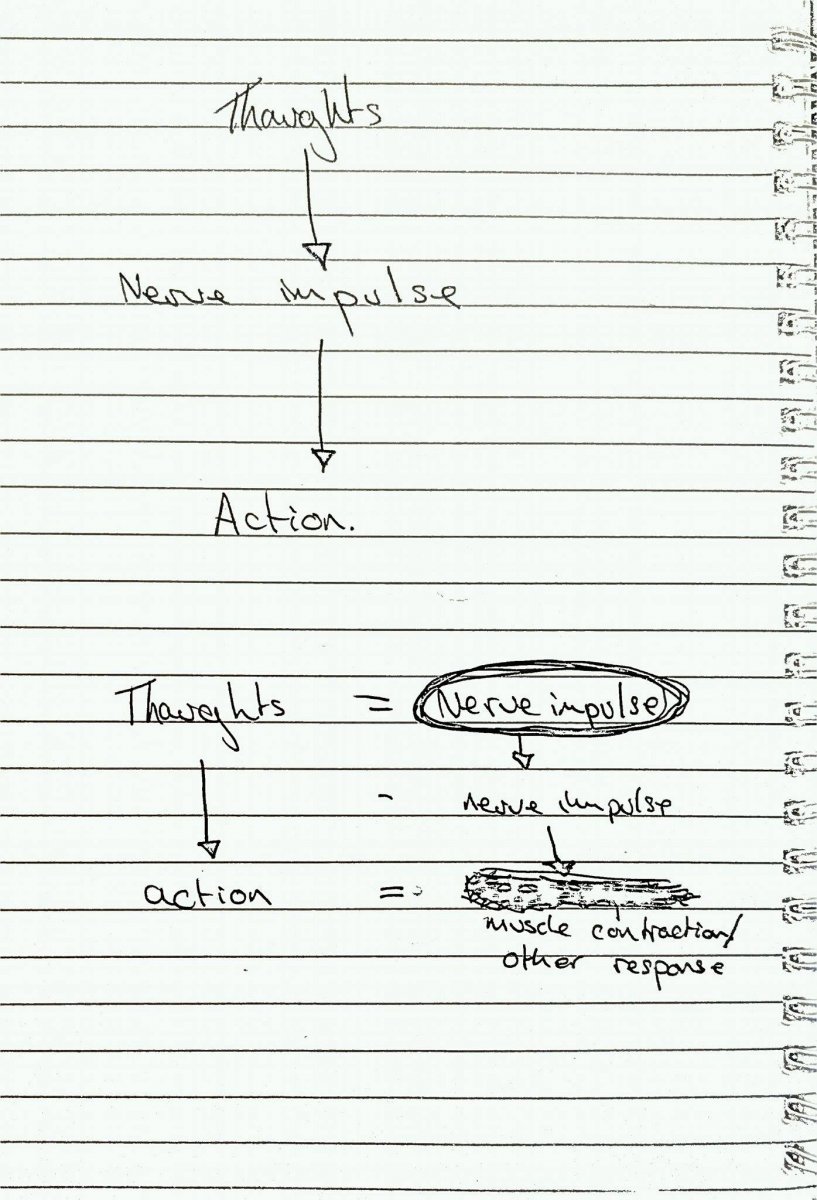 Thoughts
Nerve impulse
Action.
Thoughts = Nerve impulse
- nerve impulse
action =
muscle contraction/
other response